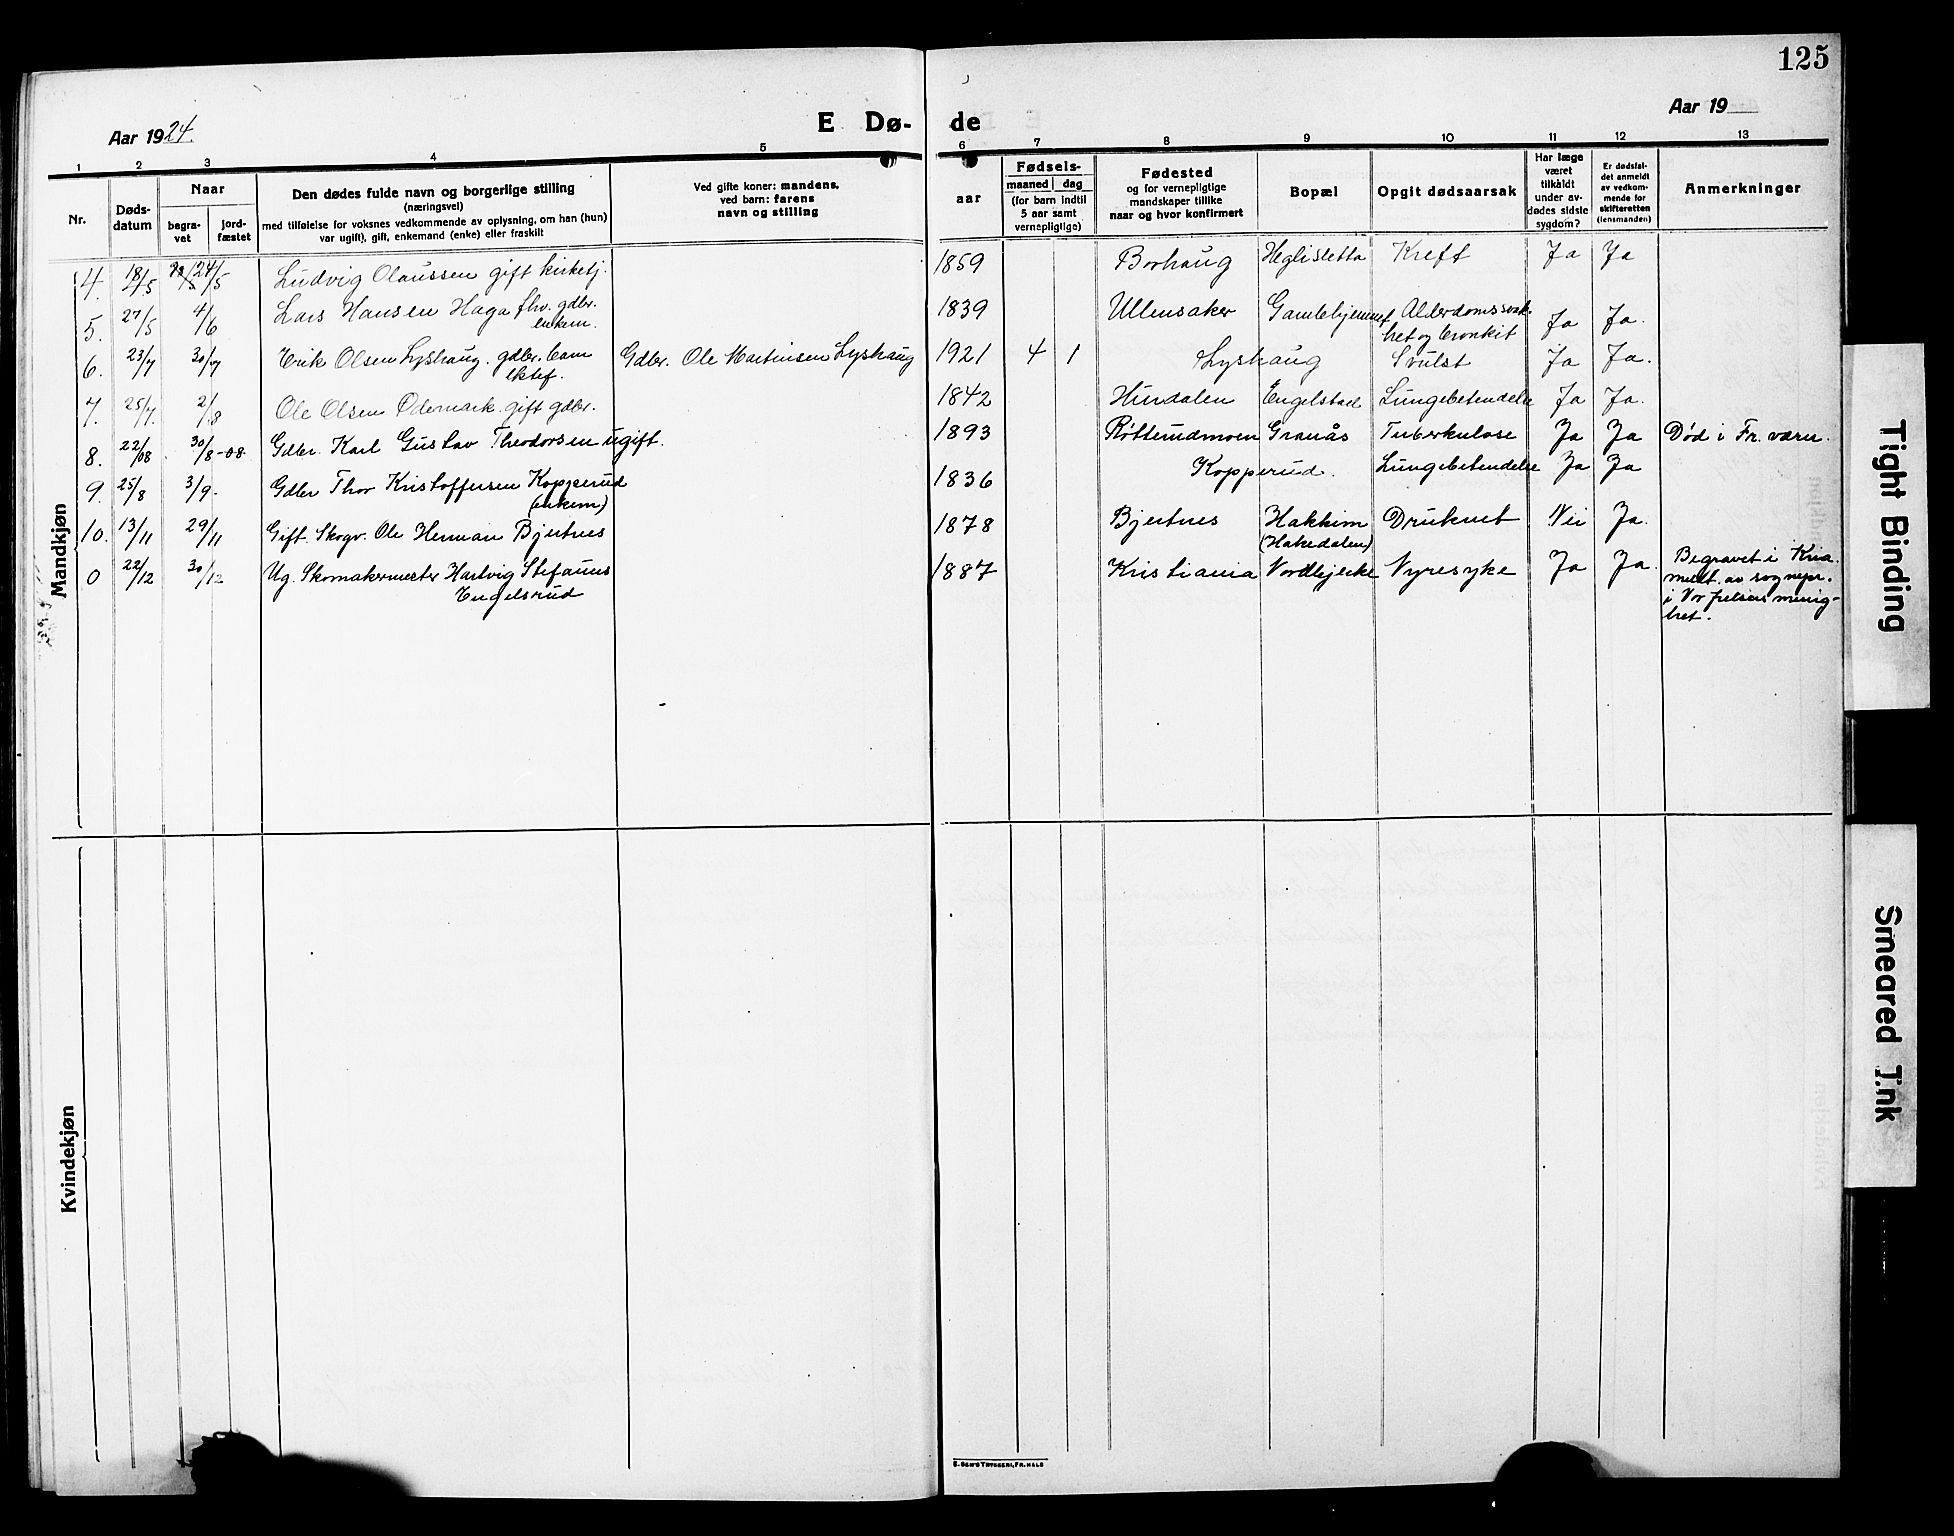 125
Aar 1924.
E Dø- de
Aar 19
1 2 3 4 5 6 7 8 9 10 11 12 13
Nr.
Døds-
datum
Naar
begra-
vet
jord-
fæstet
Den dødes fulde navn og borgerlige stilling
(næringsvei)
med tilføielse for voksnes vedkommende av oplysning, om han (hun)
var ugift), gift, enkemand (enke) eller fraskilt
Ved gifte koner: mandens,
ved barn: farens
navn og stilling
aar
Fødsels-
maaned dag
(for barn indtil
5 aar samt
vernepligtige)
Fødested
og for vernepligtige
mandskaper tillike
naar og hvor konfirmert
Bopæl
Opgit dødsaarsak
Har læge
været
tilkaldt
under av-
dødes sidste
sygdom?
Er dødsfal-
det anmeldt
av vedkom-
mende for
skifteretten
(lensmanden)
Anmerkninger
Mandkjøn
4. 18/5 24/5 Ludvig Olaussen gift kirketj. 1859 Borhaug Heglisletta Kreft Ja Ja
5. 27/5 4/6 Lars Hansen Haga fhv. gdbr. 1839 Ullensaker Gamlehjemmet Alderdomssvak-
enkem. het og bronkit Ja Ja.
6. 23/7 30/7 Erik Olsen Lyshaug. gdbr. barn Gdbr. Ole Martinsen Lyshaug 1921 4 1 Lyshaug Svulst Ja Ja.
ektef.
7. 25/7. 2/8 Ole Olsen Ødemark gift gdbr. 1842 Hurdalen Engelstad Lungebetendelse Ja Ja.
8. 22/08 30/8-08 Gdbr. Karl Gustav Theodorsen ugift. 1893 Røtterudmoen Granås Tuberkulose Ja Ja Død i Fr. værn.
9. 25/8 3/9. Gdbr Thor Kristoffersen Kopperud 1836 Kopperud. Lungebetendelse Ja Ja
(enkem)
10. 13/11 29/11 Gift. Skogv. Ole Herman Bjertnes 1878 Bjertnes Hakkim Druknet Nei Ja.
(Hakedalen)
0 22/12 30/12 Ug. Skomakermester Hartvig Stefanus 1887 Kristiania Nordbyeike Nyresyke Ja Ja. Begravet i Kria.
Engelsrud
medt. av sognepr.
i Vor frelsers menig-
het.
Kvindekjøn
Tight Binding
Smeared Ink